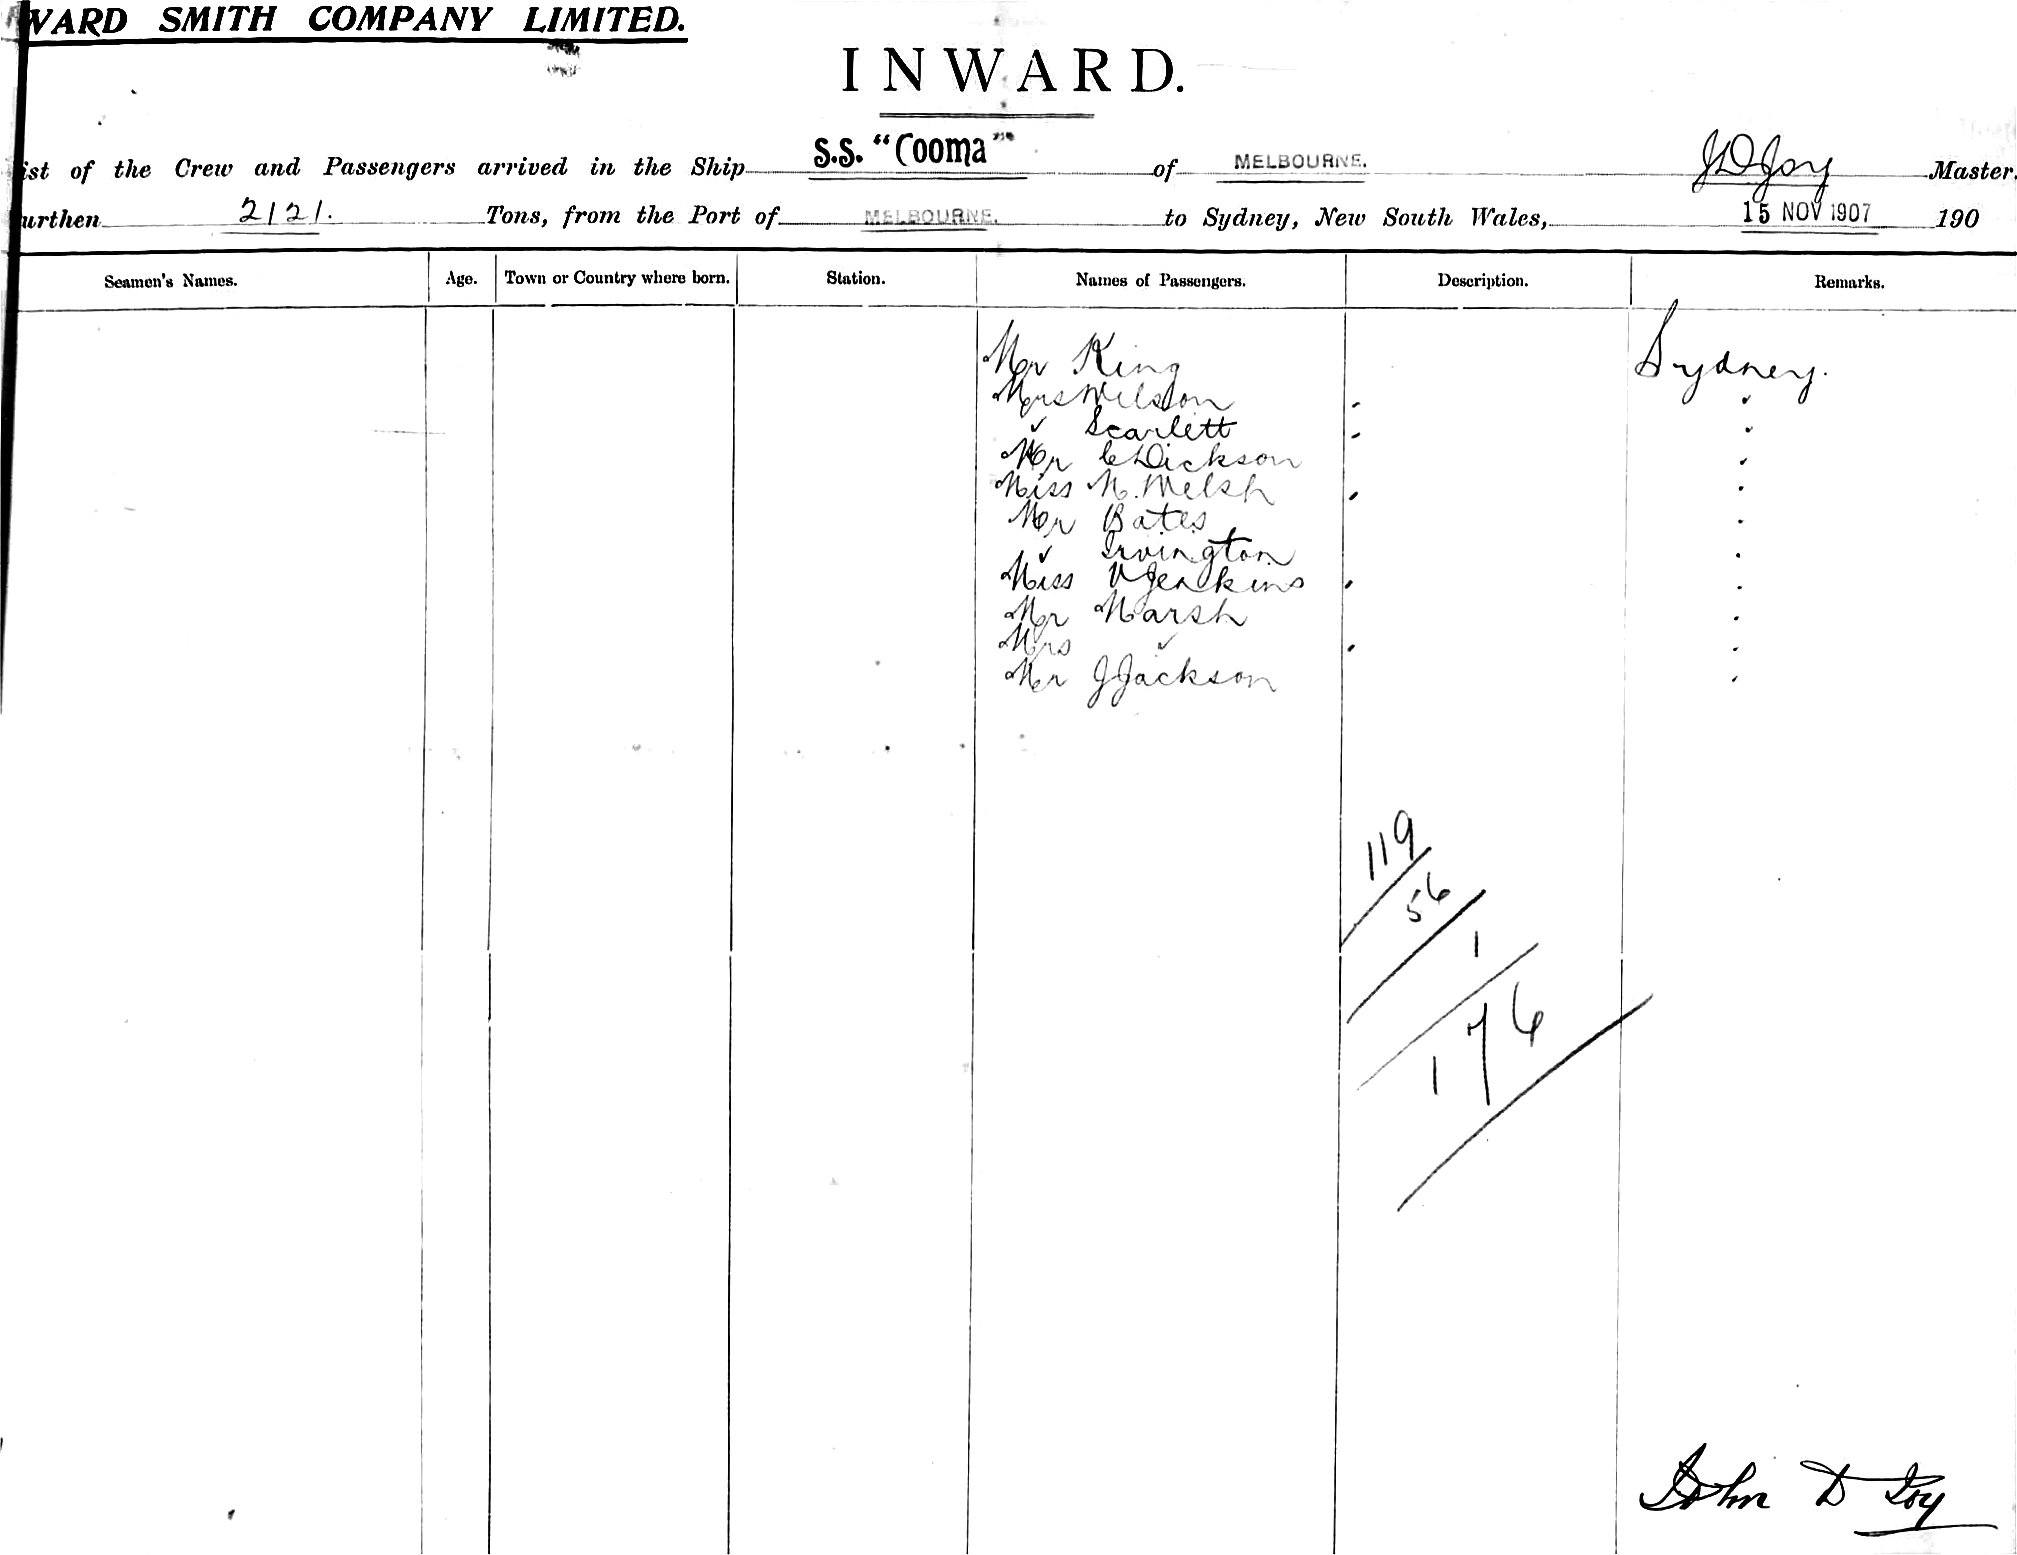 WARD SMITH COMPANY LIMITED.
INWARD.
ist of the Crew and Passengers arrived in the Ship S.S. "Cooma" of MELBOURNE. J D Joy Master.
urthen 2121. Tons, from the Port of MELBOURNE. to Sydney, New South Wales, 15 NOV 1907 190
Seamen's Names. Age. Town or Country where born. Station. Names of Passengers. Description. Remarks.
Mr King Sydney.
Mrs Wilson
" Scarlett
Mr C Dickson
Miss M. Welsh
Mr Bates
" Irvington
Miss V Jenkins
Mr Marsh
Mrs "
Mr J Jackson
119
56
1
176
John D Joy